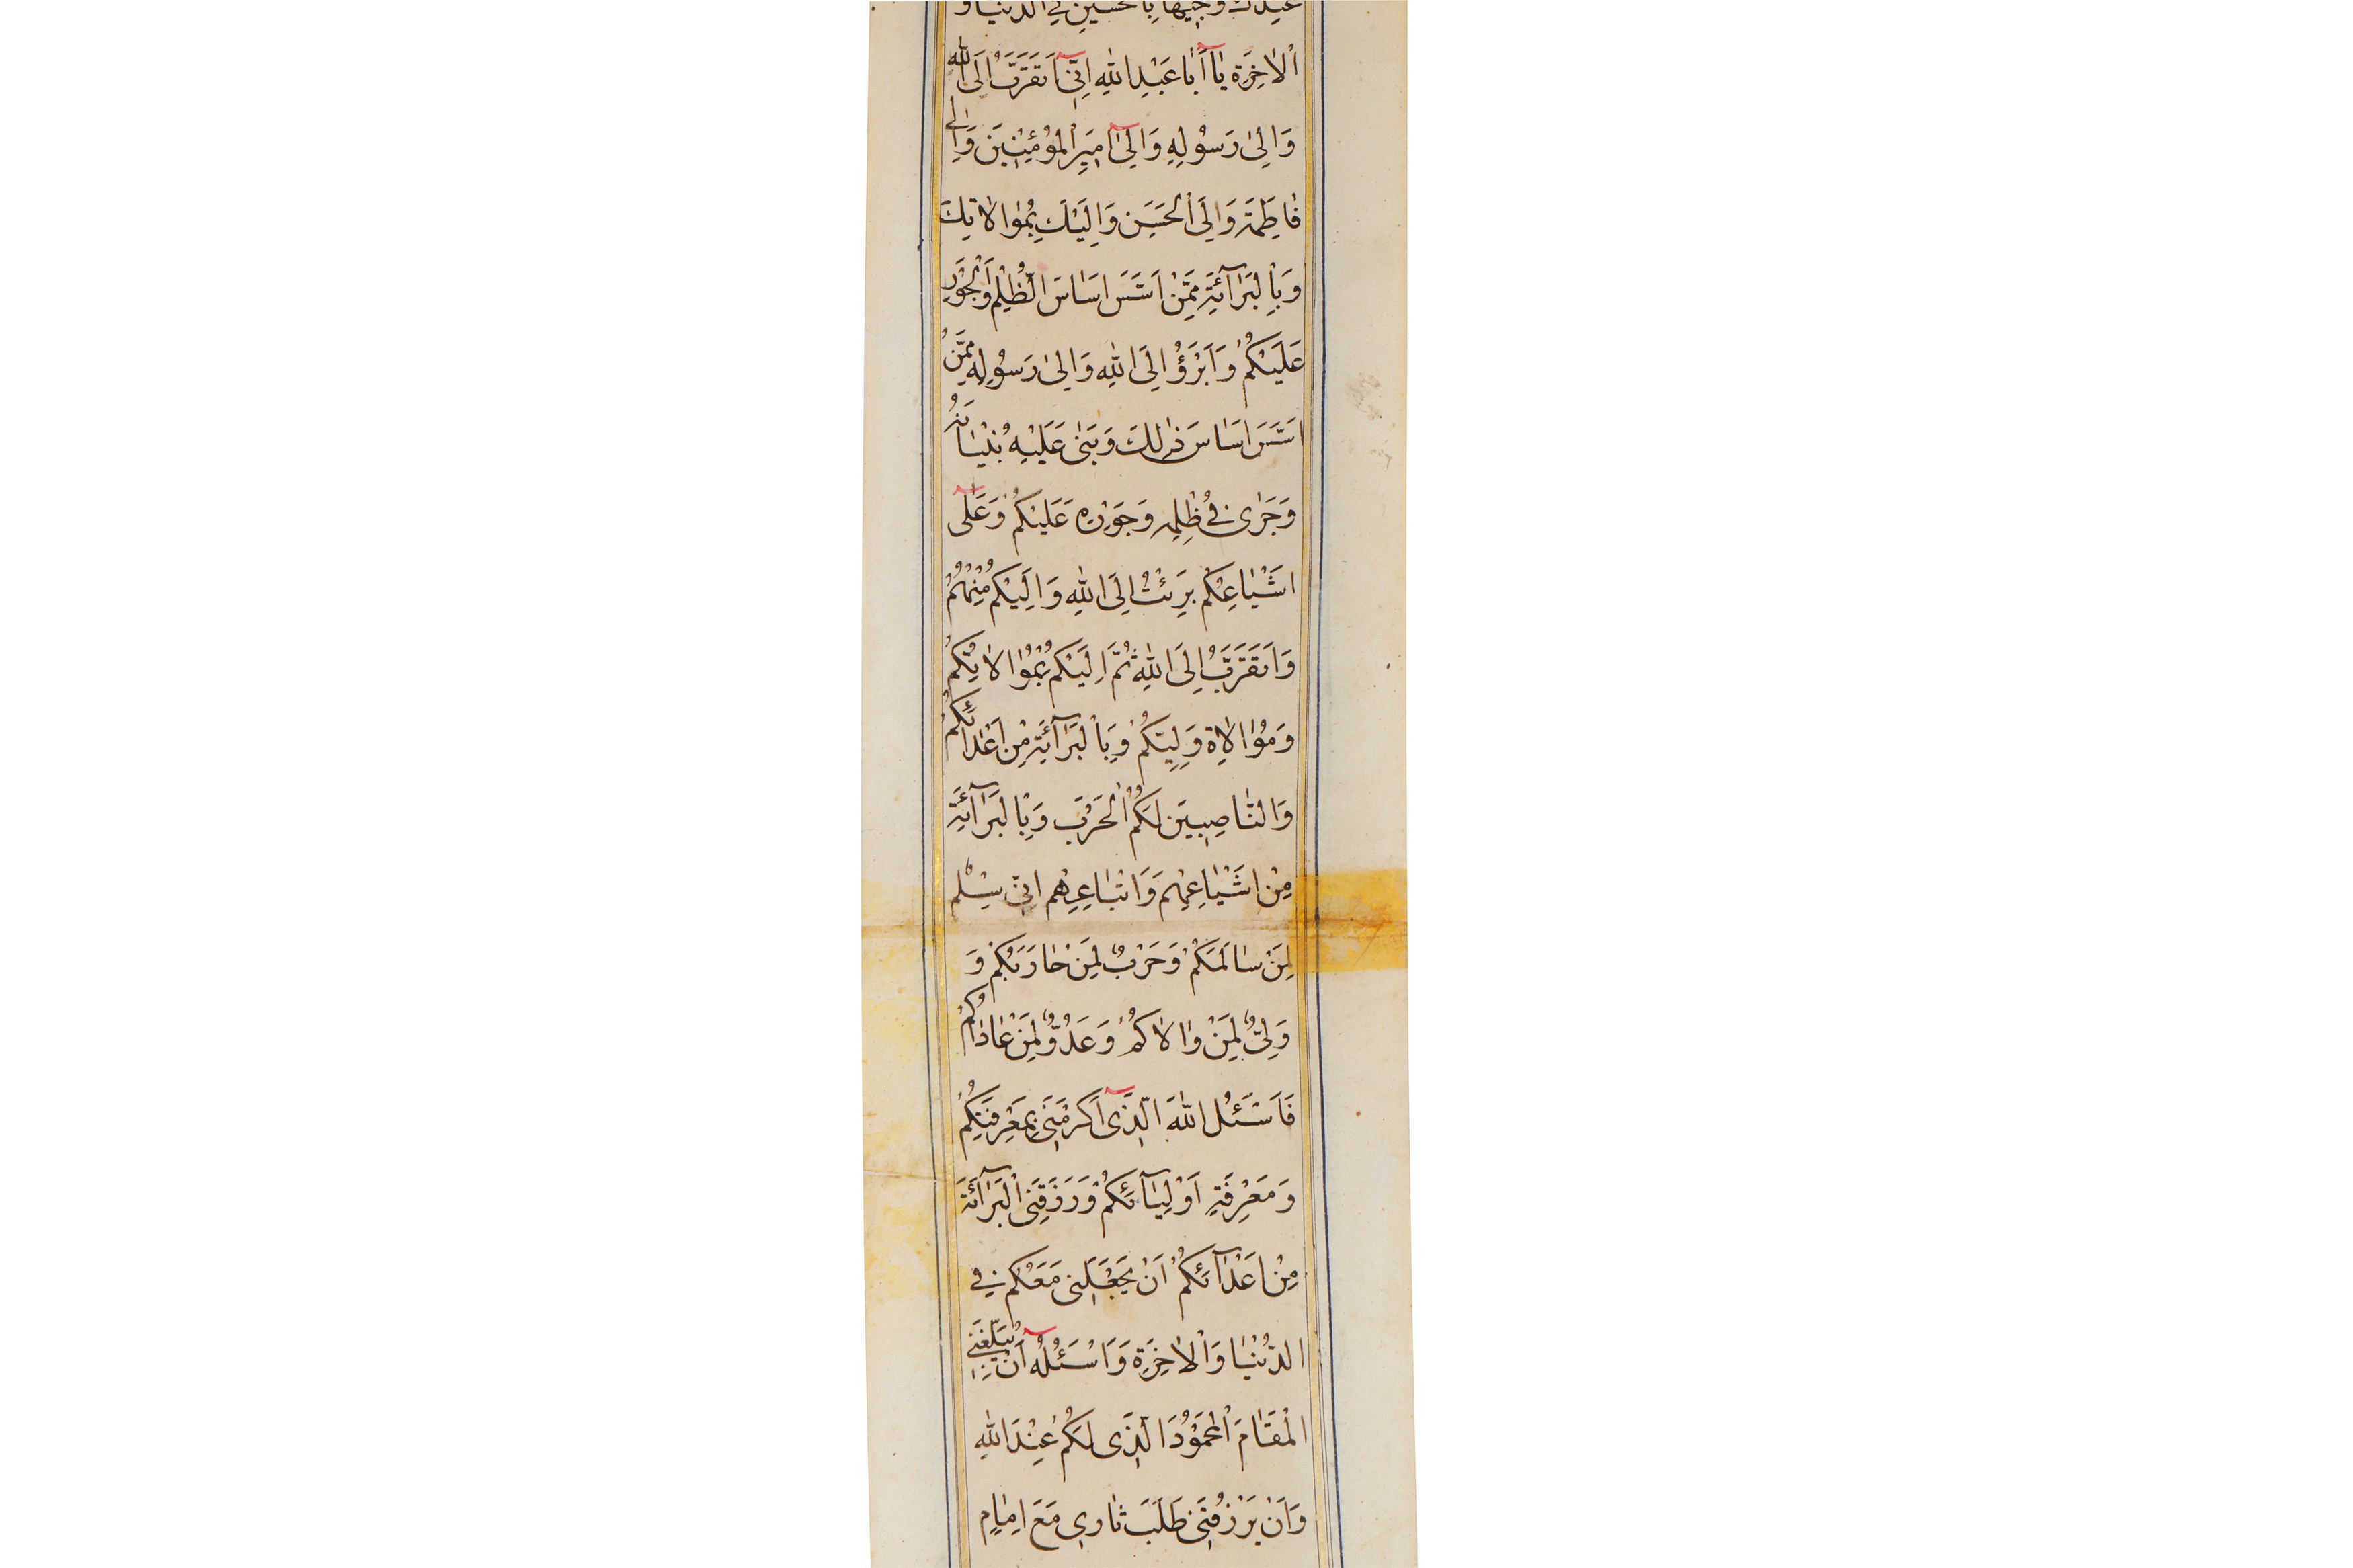 عندك وجيها بالحسين في الدنيا و
اْلاٰخِرَةِ يٰاۤ اَبٰا عَبْدِ اللهِ اِنّۤى اَتَقَرَّبُ اِلَى اللهِ
وَ اِلىٰ رَسُولِهِ وَ اِلىٰۤ اَمِيرِ الْمُؤْمِنِينَ وَ اِلىٰ
فٰاطِمَةَ وَ اِلَى الْحَسَنِ وَ اِلَيْكَ بِمُوٰالاٰتِكَ
وَ بِالْبَرٰآئَةِ مِمَّنْ اَسَّسَ اَسٰاسَ الظُّلْمِ وَ الْجَوْرِ
عَلَيْكُمْ وَ اَبْرَؤُ اِلَى اللهِ وَ اِلىٰ رَسُولِهِ مِمَّنْ
اَسَّسَ اَسٰاسَ ذٰلِكَ وَ بَنىٰ عَلَيْهِ بُنْيٰانَهُ
وَ جَرٰى فى ظُلْمِهِ وَ جَوْرِهِ عَلَيْكُمْ وَ عَلٰۤى
اَشْيٰاعِكُمْ بَرِئْتُ اِلَى اللهِ وَ اِلَيْكُمْ مِنْهُمْ
وَ اَتَقَرَّبُ اِلَى اللهِ ثُمَّ اِلَيْكُمْ بِمُوٰالاٰتِكُمْ
وَ مُوٰالاٰةِ وَلِيِّكُمْ وَ بِالْبَرٰآئَةِ مِنْ اَعْدٰائِكُمْ
وَ النّٰاصِبِينَ لَكُمُ الْحَرْبَ وَ بِالْبَرٰآئَةِ
مِنْ اَشْيٰاعِهِمْ وَ اَتْبٰاعِهِمْ اِنّى سِلْمٌ
لِمَنْ سٰالَمَكُمْ وَ حَرْبٌ لِمَنْ حٰارَبَكُمْ وَ
وَلِىٌّ لِمَنْ وٰالاٰكُمْ وَ عَدُوٌّ لِمَنْ عٰادٰاكُمْ
فَاَسْئَلُ اللهَ الَّذىۤ اَكْرَمَنى بِمَعْرِفَتِكُمْ
وَ مَعْرِفَةِ اَوْلِيٰآئِكُمْ وَ رَزَقَنِى الْبَرٰآئَةَ
مِنْ اَعْدٰآئِكُمْ اَنْ يَجْعَلَنى مَعَكُمْ فى
الدُّنْيٰا وَ الْاٰخِرَةِ وَ اَسْئَلُهُۤ اَنْ يُبَلِّغَنِى
الْمَقٰامَ الْمَحْمُودَ الَّذى لَكُمْ عِنْدَ اللهِ
وَ اَنْ يَرْزُقَنى طَلَبَ ثٰارى مَعَ اِمٰامٍ